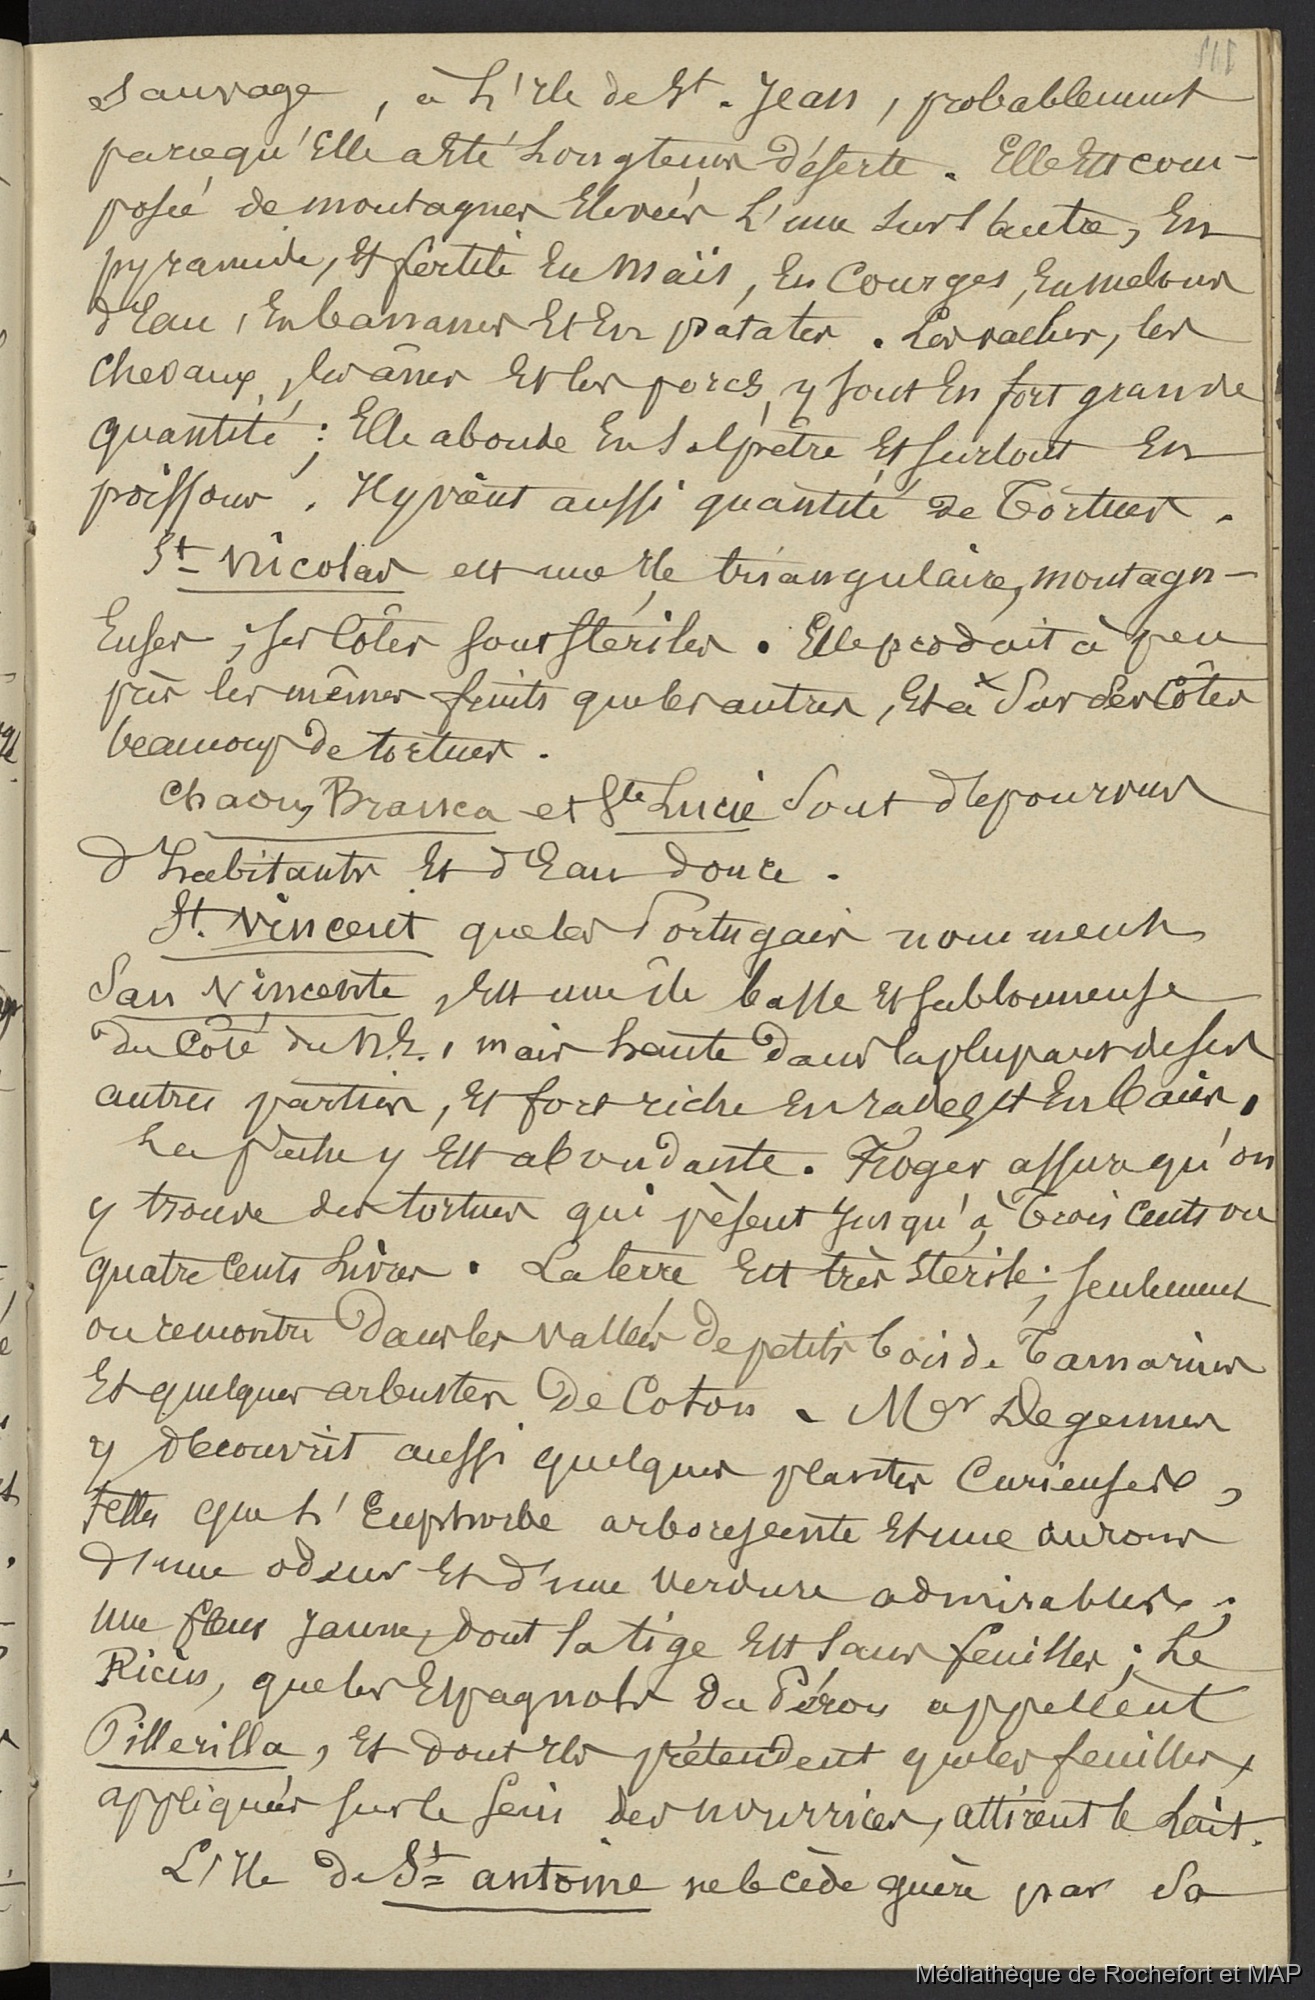 sauvage, à L'Ile de St. Jean, probablement
parcequ'Elle a Eté Longtems Déserte. Elle Est com-
posée de montagnes Elevées L'une sur l'autre, En
pyramide, Et fertile En Maïs, En Courges, En melons
d'Eau, En bananes Et En patates. Les vaches, les
chevaux, les ânes Et les porcs, y sont En fort grande
quantité; Elle abonde En Salpêtre Et surtout En
poissons. Il y vient aussi quantité de Tortues.
St Nicolas est une Ile triangulaire, montagn-
Euses; ses Côtes sont stériles. Elle produit à peu
près les mêmes fruits que les autres, Et a sur ses Côtes
beaucoup de tortues.
Chaon, Branca et Ste Lucie sont dépourvus
d'habitants Et d'Eau douce.
St. Vincent que les Portugais nomment
San Vincente, Est une île basse Et sablonneuse
du Côté du N.E., mais haute dans la plupart de ses
autres parties, Et fort riche En rades Et En Baies,
La Pêche y Est abondante. Froger assure qu'on
y trouve des tortues qui pèsent Jusqu'à Trois Cents ou
quatre Cents Livres. La terre Est très stérile; seulement
on remontre Dans les vallées De petits bois de Tamarins
Et quelques arbustes De Coton. Mr Degennes
y découvrit aussi quelques plantes Curieuses,
telles que L'Euphorbe arborescente Et une aurone
d'une odeur Et d'une verdure admirables;
une fleur Jaune, dont la tige Est sans feuilles; Le
Ricin, que les Espagnols du Pérou appellent
Pillerilla, Et dont Ils prétendent que les feuilles,
appliquées sur le sein des nourrices, attirent le Lait.
L'Ile de St antoine ne le cède guère par sa
Médiathèque de Rochefort et MAP